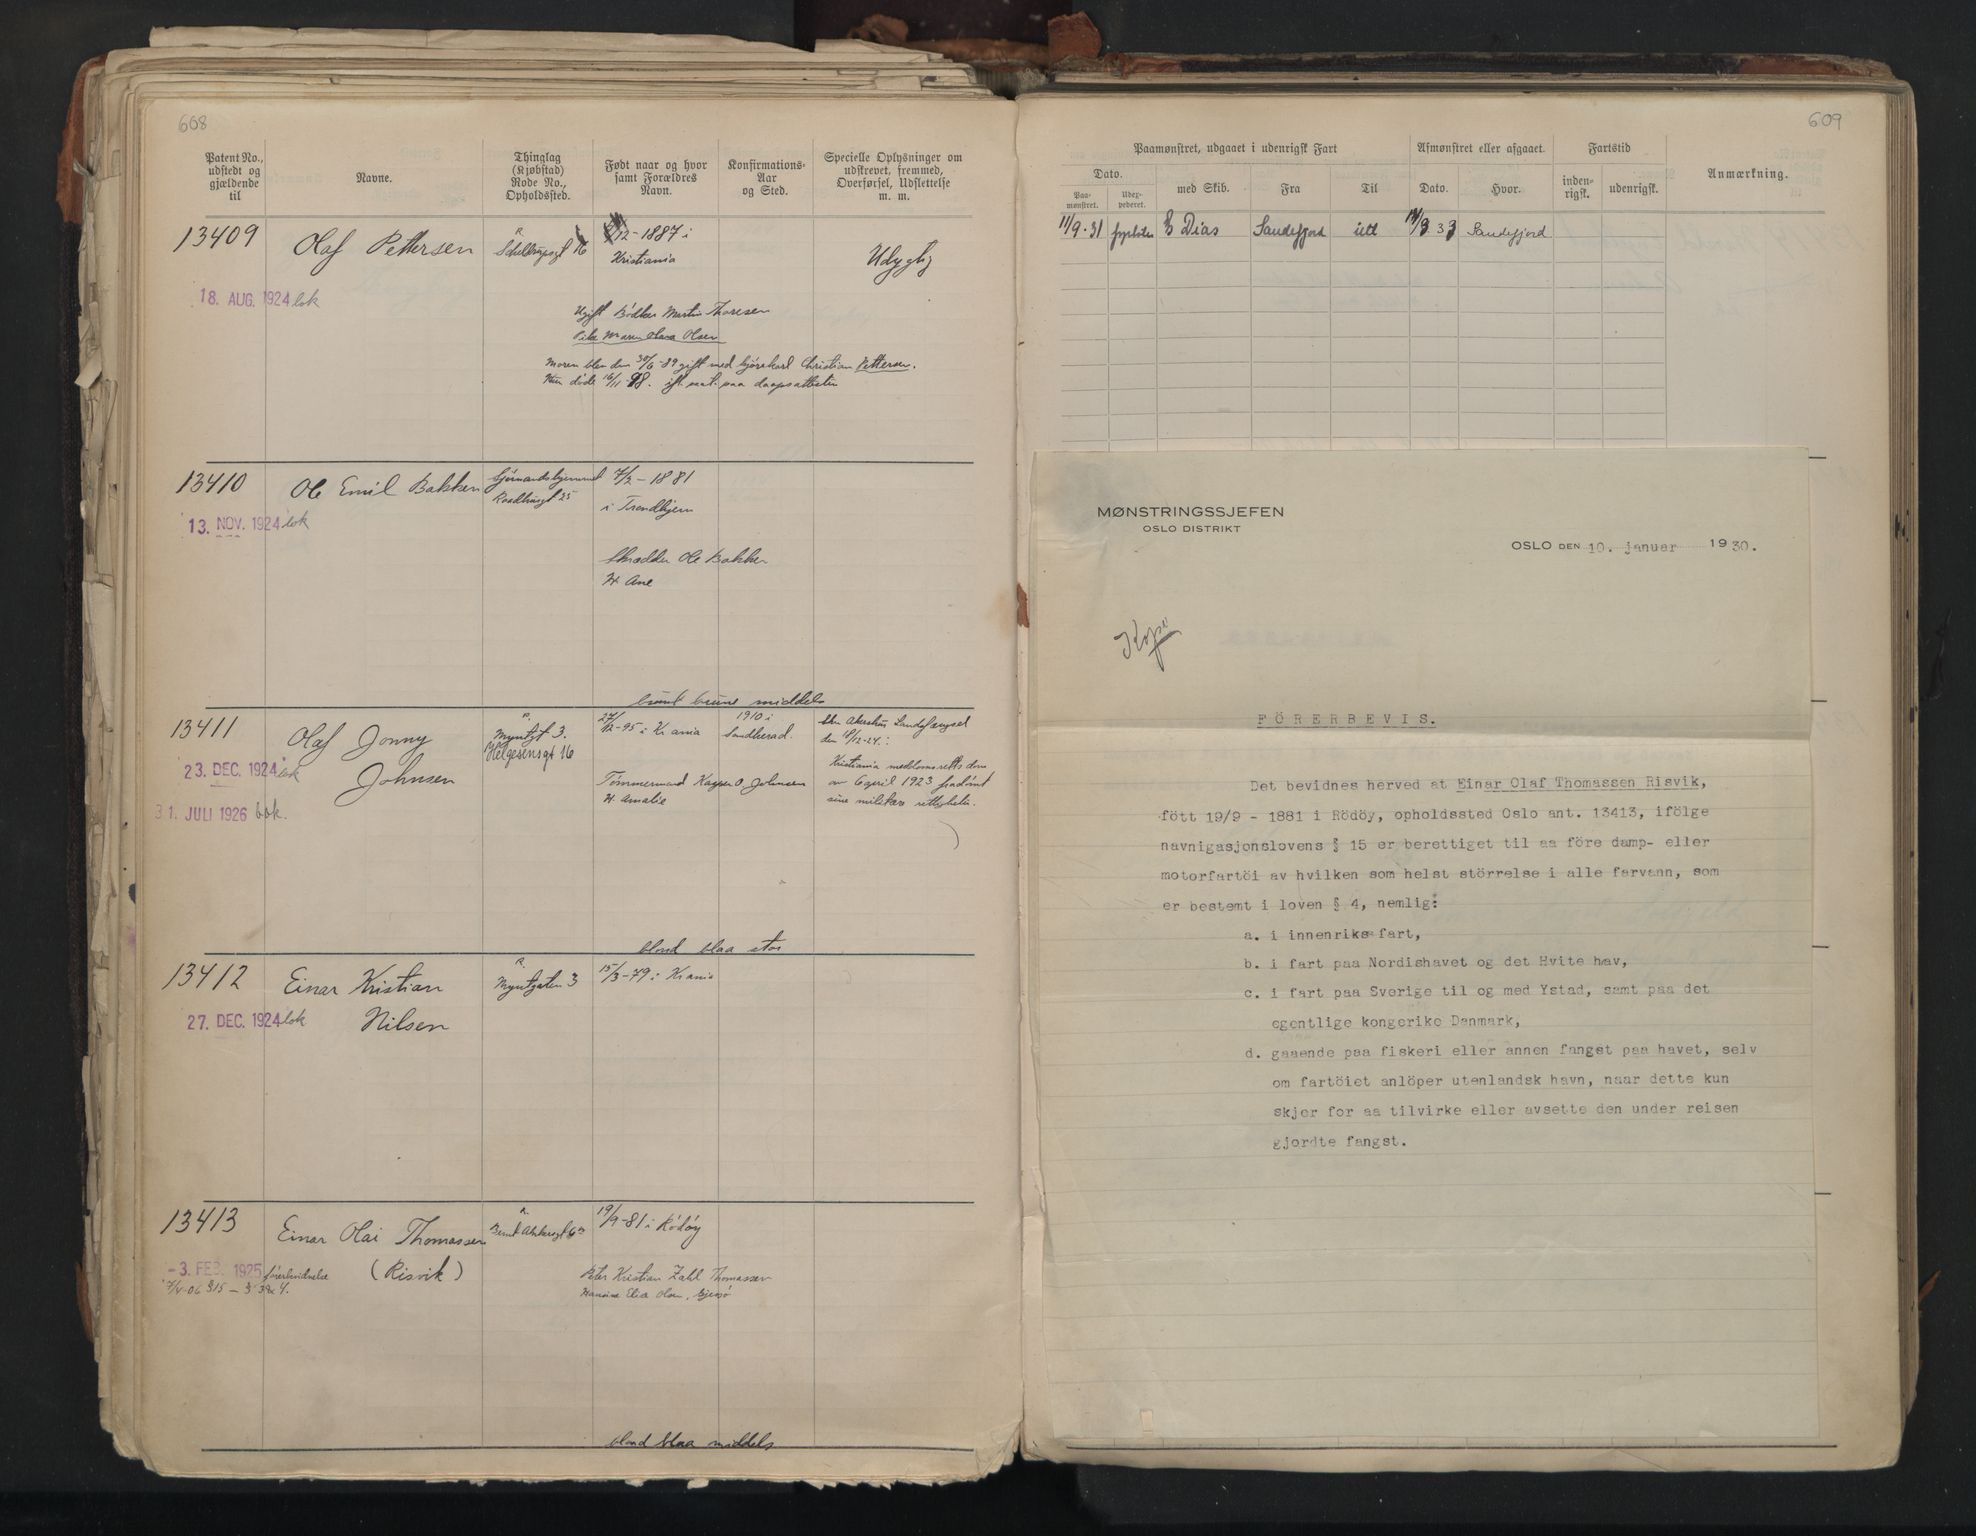 608
Patent No., udstedt og gjældende til
Navne.
Thinglag (Kjøbstad) Rode No., Opholdssted.
Født naar og hvor samt Forældres Navn.
Konfirmations-Aar og Sted.
Specielle Oplysninger om udskrevet, fremmed, Overførsel, Udslettelse m. m.
13409
Olaf Pettersen
16
12-1887 i
Kristiania
Udygtig
18. AUG. 1924 lok
Ugift Bødker Martin Thoresen
Pike Maren Olava Olsen
Moren blev den 30/6-89 gift med kjørekarl Christian Pettersen.
Hun døde 16/11-98. paa daapsattesten
13410
Ole Emil Bakken
Sjømandshjemmet
Raadhusgt 25
7/2-1881
i Trondhjem
13. NOV. 1924 lok
Skrædder Ole Bakken
H. Ane
brunt brune middels
13411
Olaf Jonny
Johnsen
Myntgt 3.
Helgesensgt 16
27/12-95 i Krania
1910 i
Sandherad.
Akershus Landsfængsel
den 18/12-24:
Kristiania meddomsretts dom
av 6 april 1923 fradømt
sine militære rettigheter.
23. DEC. 1924 lok
31. JULI 1926 bok.
Tømmermand Kasper O. Johnsen
H. Amalie
blond blaa stor
13412
Einar Kristian
Nilsen
Myntgaten 3
15/3-79 i Krania
27. DEC. 1924 lok
13413
Einar Olai Thomassen
(Risvik)
19/9-81 i Rödöy
-3. FEB. 1925 førerbevidnelse
7/4-06 §15 - § 3 &4.
Peter Kristian Zahl Thomassen
Elia Olsen,
blond blaa middels
609
Paamønstret, udgaaet i udenrigsk Fart
Afmønstret eller afgaaet.
Fartstid
Anmærkning.
Dato.
Paa-mønstret.
Udex-pederet.
med Skib.
Fra
Til
Dato.
Hvor.
inden-rigsk.
udenrigsk.
11/9-31
Dias
Sandefjord
33
Sandefjord
MØNSTRINGSSJEFEN
OSLO DISTRIKT
OSLO DEN 10. januar 1930.
Kopi
FÖRERBEVIS.
Det bevidnes herved at Einar Olaf Thomassen Risvik,
fött 19/9 - 1881 i Rödöy, opholdssted Oslo ant. 13413, ifölge
navnigasjonslovens § 15 er berettiget til aa före damp- eller
motorfartöi av hvilken som helst störrelse i alle farvann, som
er bestemt i loven § 4, nemlig:
a. i innenriks fart,
b. i fart paa Nordishavet og det Hvite hav,
c. i fart paa Sverige til og med Ystad, samt paa det
egentlige kongerike Danmark,
d. gaaende paa fiskeri eller annen fangst paa havet, selv
om fartöiet anlöper utenlandsk havn, naar dette kun
skjer for aa tilvirke eller avsette den under reisen
gjordte fangst.